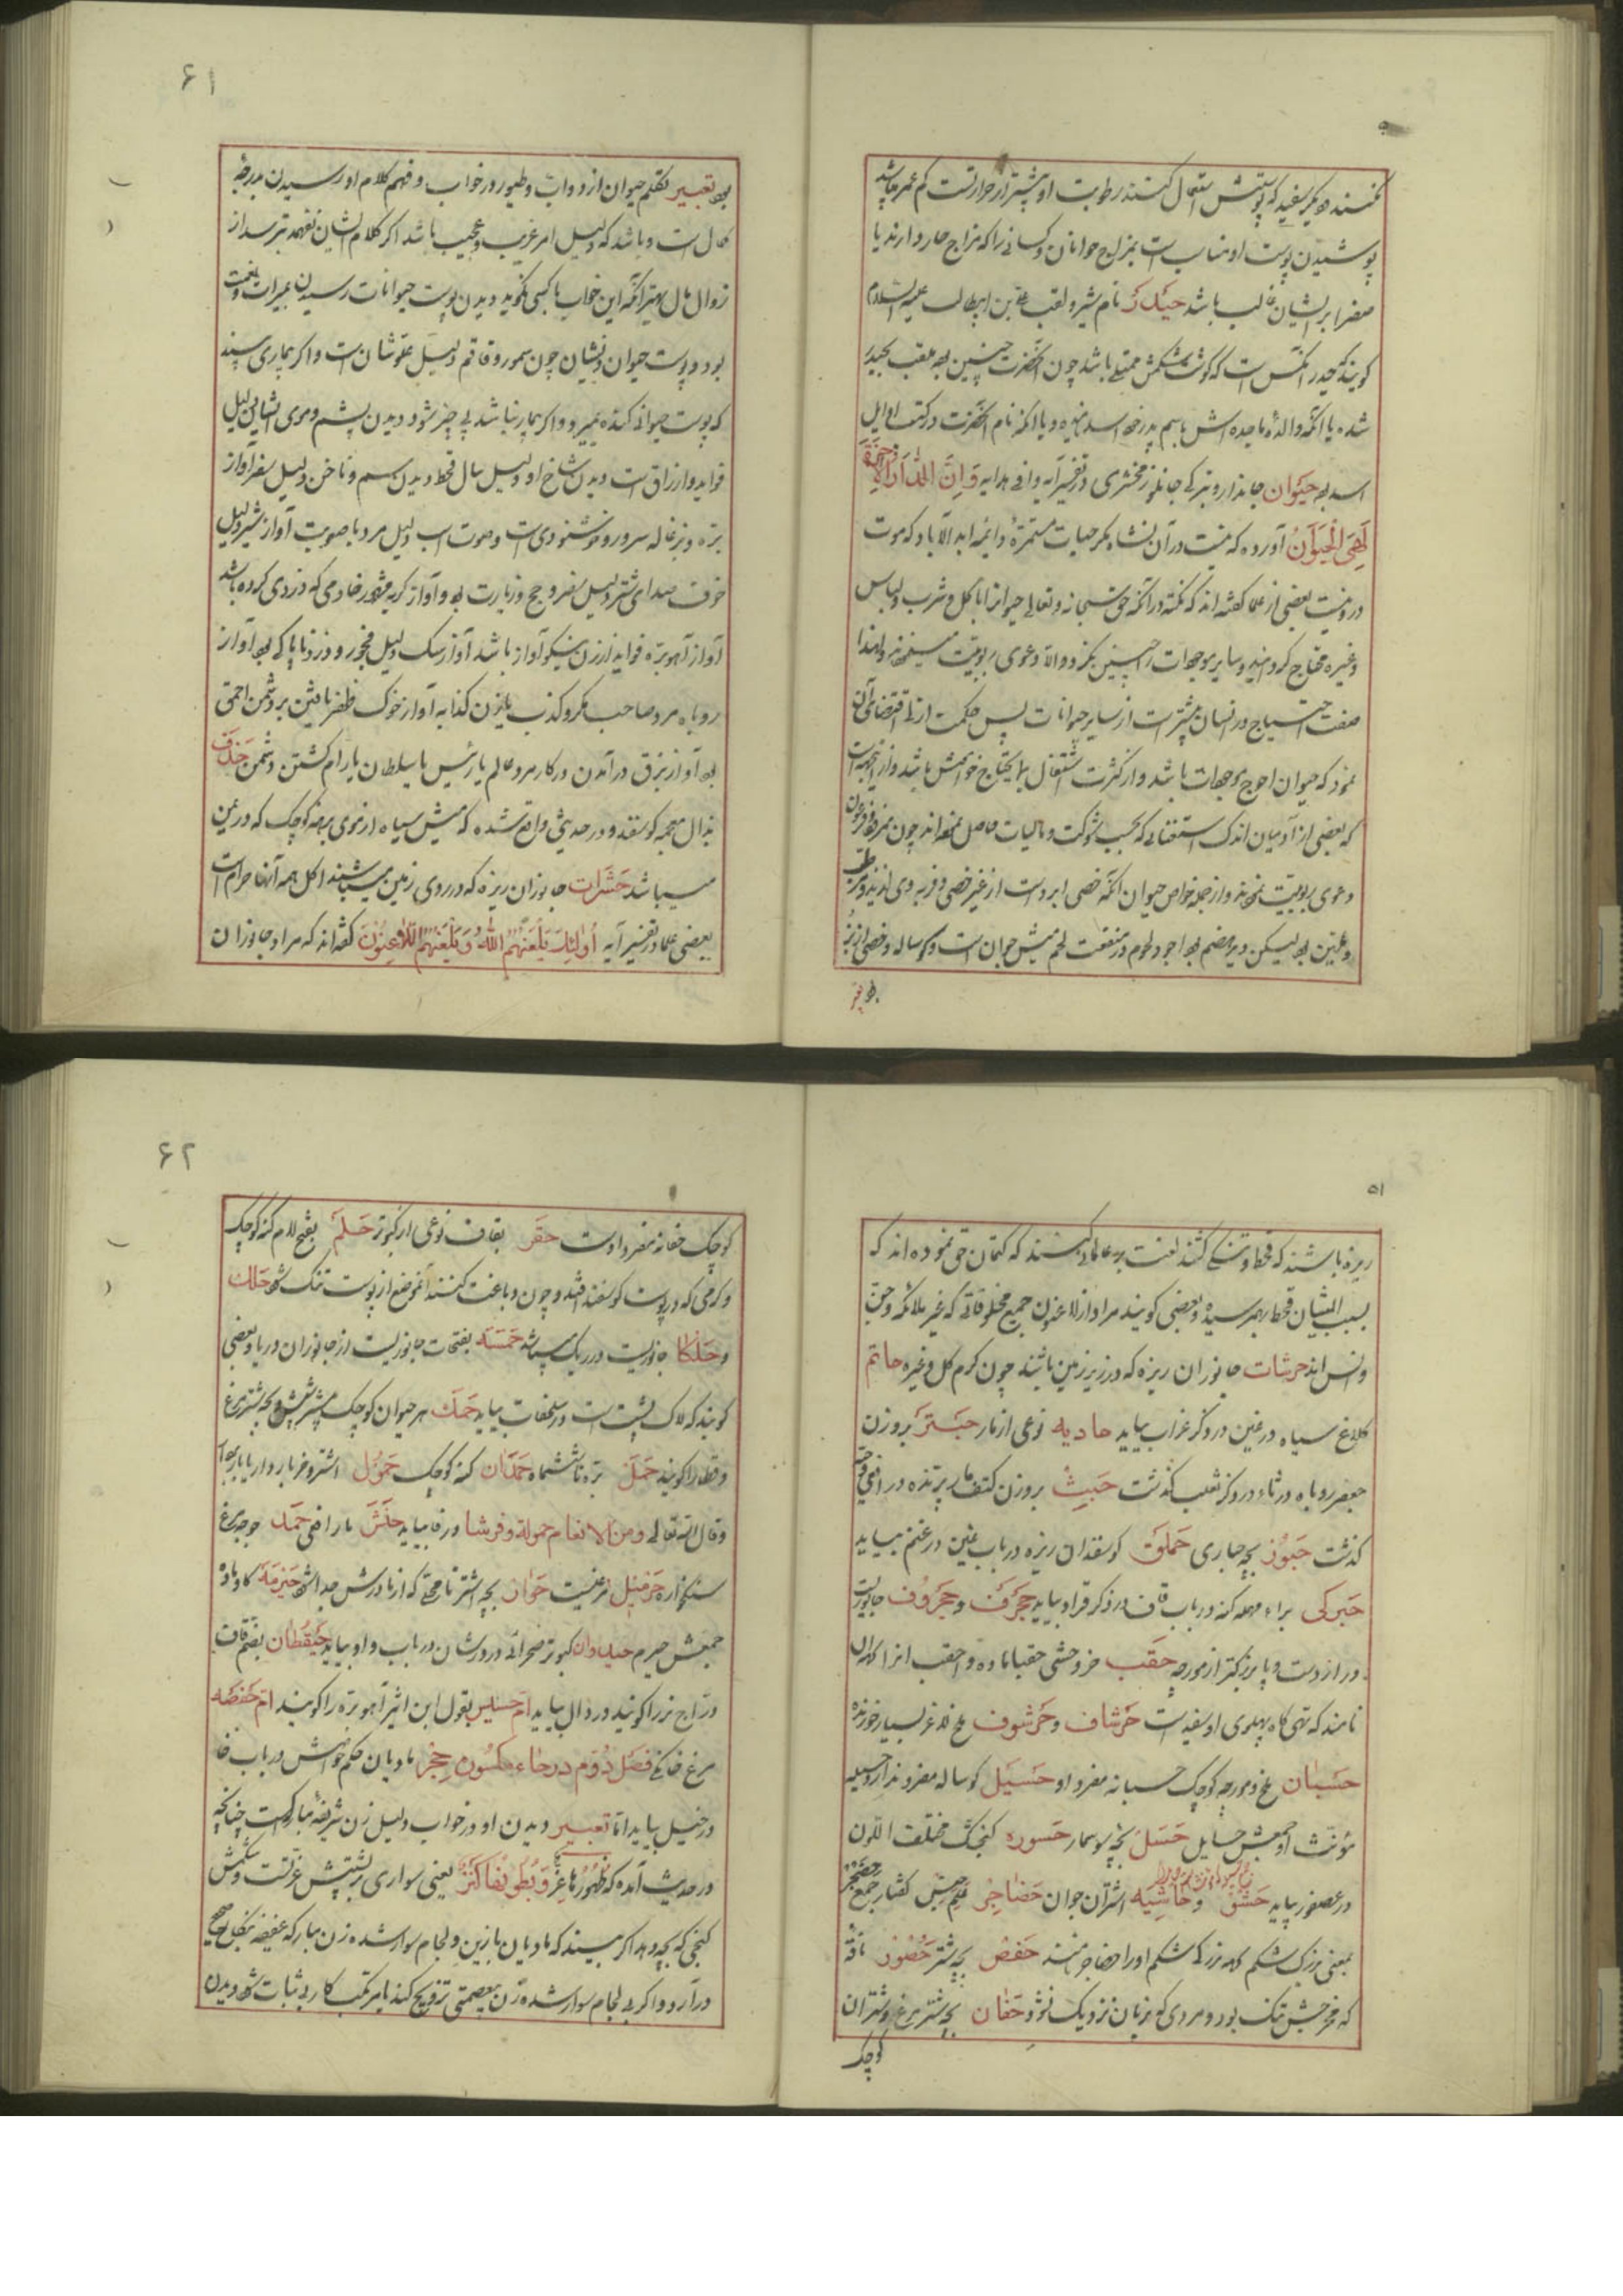 کنند و دیگر سفید که پوستش استعمال کنند رطوبت او بیشتر از حرارتست کم عمر باشد
پوشیدن پوست او مناسب است بمزاج جوانان و کسانی را که مزاج حار دارند یا
صفرا بر ایشان غالب باشد حیدر نام شیر و لقب علی بن ابیطالب علیه السلام
کویند حیدر آنکس است که کوشت شکمش ممتلی باشد چون آنحضرت چنین بود ملقب بحیدر
شده یا آنکه والدهٔ ماجده اش باسم پدر خود اسد نامیده و یا آنکه نام آنحضرت در کتب اوایل
اسد بود حیوان جاندار و بترکی جانلو زمخشری در تفسیر آیه وافی هدایه وَاِنَّ الدّارَ الآخِرَةَ
لَهِیَ الْحَیَوانُ آورده که نیست در آن نشاء مکر حیات مستمرهٔ دائمه ابد الآباد که موت
درو نیست بعضی از علما کفته اند که نکته در آنکه حق سبحانه و تعالی حیوانرا باکل و شرب و لباس
و غیره محتاج کردانید و سایر موجودات را چنین نکرد والا دعوی ربوبیت میکردند و لهذا
صفت احتیاج در انسان بیشتر است از سایر حیوانات پس حکمت ازلی اقتضای آن
نمود که حیوان احوج موجودات باشد و از کثرت اشتغال بما یحتاج خود
که بعضی از آدمیان اندک استغنائی که بحسب شوکت و مالیات حاصل نموده اند چون نمرود و فرعون
دعوی ربوبیت نمودند و از جمله خواص حیوان آنکه خصی ابرد است از غیر خصی و فربه وی لذیذ و مرطب
و ملین بود لیکن دیر هضم بود اجود لحوم در منفعت لحم میش جوان است و کوساله و خصی از بز
بود تعبیر
۶۱
بود تعبیر تکلم حیوان از دواب و طیور در خواب و فهم کلام او رسیدن بدرجهٔ
کمال است و باشد که دلیل امر غریب و عجیب باشد اکر کلام ایشان نفهمد بترسد از
زوال مال بهتر آنکه این خواب با کسی نکوید دیدن پوست حیوانات رسیدن بمیراث و نعمت
بود و پوست حیوان ذیشان چون سمور و قاقم دلیل علو شان است و اکر بیماری بیند
که پوست حیوانی کنده بمیرد و اکر بیمار نباشد بی چیز شود دیدن پشم و موی ایشان دلیل
فواید و ارزاق است دیدن شاخ او دلیل سال قحط دیدن سم و ناخن دلیل سفر آواز
بره و بزغاله سرور و خوشنودی است و صوت اسب دلیل مرد با صوبت آواز شیر دلیل
خوف صدای شتر دلیل سفر و حج و زیارت بود و آواز کربه مقهور خادمی که دزدی کرده باشد
آواز آهو بره فواید از زن نیکو آواز باشد آواز سک دلیل فجور و دزد ناپاکی بود آواز
روباه مرد صاحب مکر و کذب یا زن کذابه آواز خوک ظفر یافتن بر دشمن احمق
بود آواز بزق درآمدن در کار مرد عالم یا رئیس یا سلطان یا رام کشتن دشمن حَذَف
بذال معجمه کوسفند و در حدیثی واقع شده که میش سیاه از موی برهنه کوچک که در یمن
میباشد حَشَرات جانوران ریزه که در روی زمین میباشند اکل همه آنها حرام است
بعضی علما در تفسیر آیه اُولٰئِكَ یَلْعَنُهُمُ اللّٰهُ وَیَلْعَنُهُمُ اللّاعِنُونَ کفته اند که مراد جانوران
۵۱
ریزه باشند که قحط و تنکی کشند لعنت بر عالمانی کنند که کتمان حق نموده اند که
بسبب ایشان قحط بهمرسیده و بعضی کویند مراد از لاعنون جمیع مخلوقاتی که غیر ملائکه و جن
و انس اند حرشات جانوران ریزه که در زیر زمین باشند چون کرم کل و غیره حاتم
کلاغ سیاه در غین در ذکر غراب بیاید حادیه نوعی از مار حَبْتَر بر وزن
جعفر روباه در ثاء در ذکر ثعلب کذشت حَبِث بر وزن کتف مار پرنده در افعی
کذشت حَبُّور بچه حباری حَملَق کوسفندان ریزه در باب غین در غنم بیاید
حَبرکی براء مهمله کنه در باب قاف در ذکر قراد بیاید حَجرَف و حَجرُوف جانوریست
دراز دست و پا بزرکتر از مورچه حَقَب خر وحشی حقباء ماده و احقب انرا
نامند که تهی کاه پهلوی او سفید است حَرشاف و حَرشوف ملخ لاغر بسیار خورنده
حسبان ملخ و مورچه کوچک حسبانه مفرد او حَسیل کوساله مفرد ندارد حسیله
مؤنث او جمعش حسایل حِسَل بچه سوسمار حَسوره کنجشک مختلف اللون
در عصفور بیاید حَشَق و حاشیه اشتران جوان حَضاجِر کفتار جمع حضجر
بمعنی بزرک شکم که بزرکی شکم او را حضاجر نامند حَفص بچه شیر حَضُور ناقهٔ
که مخرجش تنک بود و مردی که بزنان نزدیک نشود حَفّان بچه شترمرغ و شتران
کوچک
۶۲
کوچک حفانه مفرد اوست حَقَر بقاف نوعی از کبوتر حَلَم بفتح لام کنه کوچک
و کرمی که در پوست کوسفند افتد و چون دباغت کنند آنموضع از پوست تنک شود حَلَك
و حَلکا جانوریست در ریک میباشد حَمَسَه بفتحات جانوریست از جانوران دریا و بعضی
کویند که لاک پشت است در سلحفات بیاید حَمَك هر حیوان کوچک چون شپش و بچه شترمرغ
و قطا را کویند حَمَل بره تا ششماه حَمنان کنه کوچک حَمُول اشتر و خر باردار یا بی بار
و قال الله تعالی ومن الانعام حمولة وفرشا در فا بیاید حَنَش مار افعی حَمَد جوجه مرغ
سنکخواره حَرمبل مرغیست حُوار بچه اشتر تا وقتی که از مادرش جدا شود حَیرَمَه کاو ماده
جمعش حیرم حیدوان کبوتر صحرائی در ورشان در باب واو بیاید حَیقُطان بضم قاف
دراج نر را کویند در دال بیاید ام حسلیس بقول ابن اثیر آهو بره را کویند ام حفصه
مرغ خانکی فصل دوم در حاء مکسوره حِجر مادیان حکم خواص در باب خا
در خیل بیاید اما تعبیر دیدن او در خواب دلیل زن شریفه مبارکه است چنانچه
در حدیث آمده که ظُهُورُها عِزٌّ وَبُطُونُها كَنْزٌ یعنی سواری بر پشتش عزتست و شکمش
کنجی که بچه دهد اکر بیند که مادیان بازین و لجام سوار شده زن مبارکه عفیفه بنکاح صحیح
درآرد و اکر بی لجام سوار شده زن بیعصمتی تزویج کند یا مرتکب کار بی ثبات شود دیدن